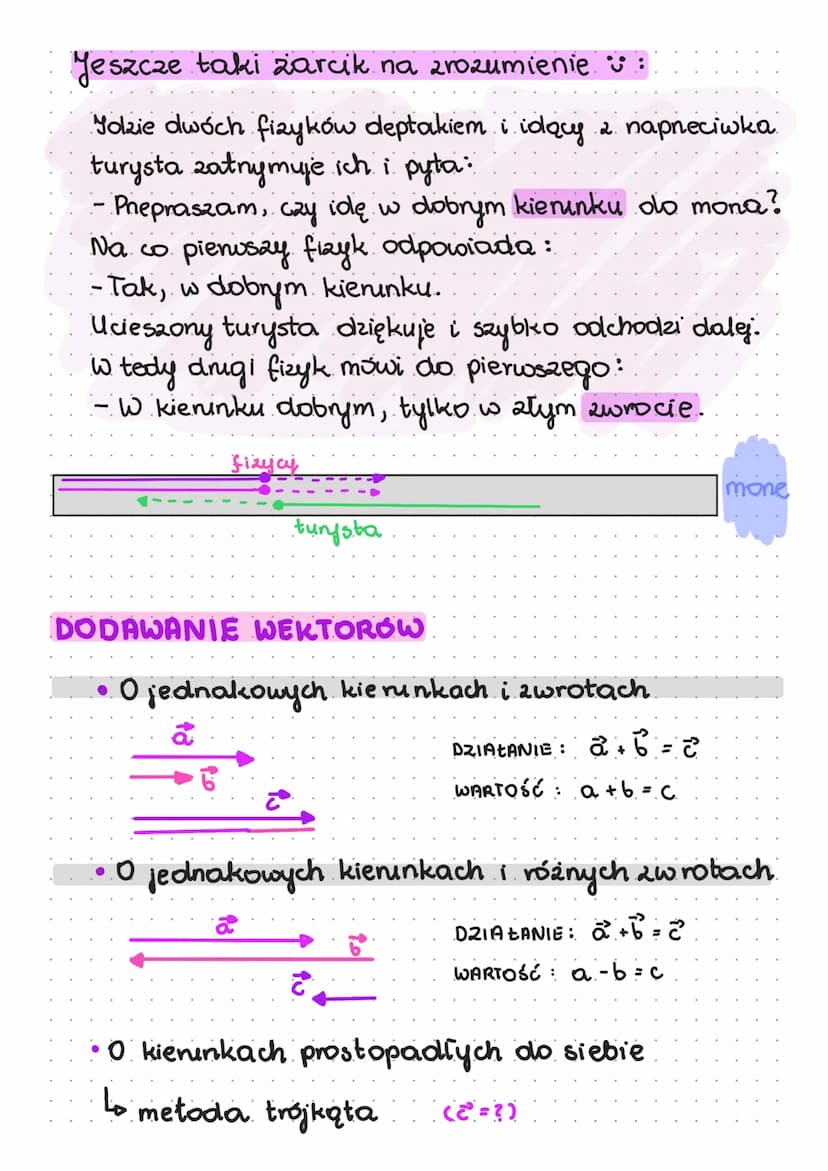 Jeszcze taki żarcik na zrozumienie :
Idzie dwóch fizyków deptakiem i idący z naprzeciwka
turysta zatrzymuje ich i pyta:
- Przepraszam, czy idę w dobrym kierunku do morza?
Na co pierwszy fizyk odpowiada:
- Tak, w dobrym kierunku.
Ucieszony turysta dziękuje i szybko odchodzi dalej.
W tedy drugi fizyk mówi do pierwszego:
- W kierunku dobrym, tylko w złym zwrocie.
fizycy
morze
turysta
DODAWANIE WEKTORÓW
• O jednakowych kierunkach i zwrotach
a⃗
b⃗
c⃗
DZIAŁANIE: a⃗ + b⃗ = c⃗
WARTOŚĆ: a + b = c
• O jednakowych kierunkach i różnych zwrotach
a⃗
b⃗
c⃗
DZIAŁANIE: a⃗ + b⃗ = c⃗
WARTOŚĆ: a - b = c
• O kierunkach prostopadłych do siebie
↳ metoda trójkąta (c⃗ = ?)